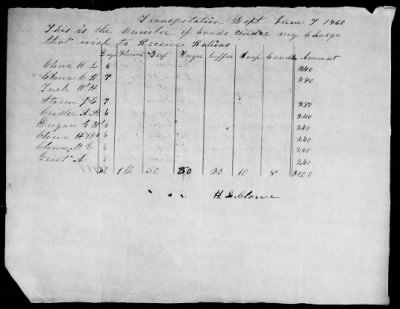 Transpotation Dept June 7 1860
This is the number of hands under my Charge
that wish to Receive Rations
Days Flour Beef Sugar Coffee Soap Candles Amount
Clowe H L 6 240
Clowe C R 7 280
Tusk W H
Storm J C 7 280
Custer A H 6 240
Dugan E W 6 240
Clowe H H 6 240
Clowe M C 6 240
Grist A 240
50 50 20 10 8 2000
H. L. Clowe